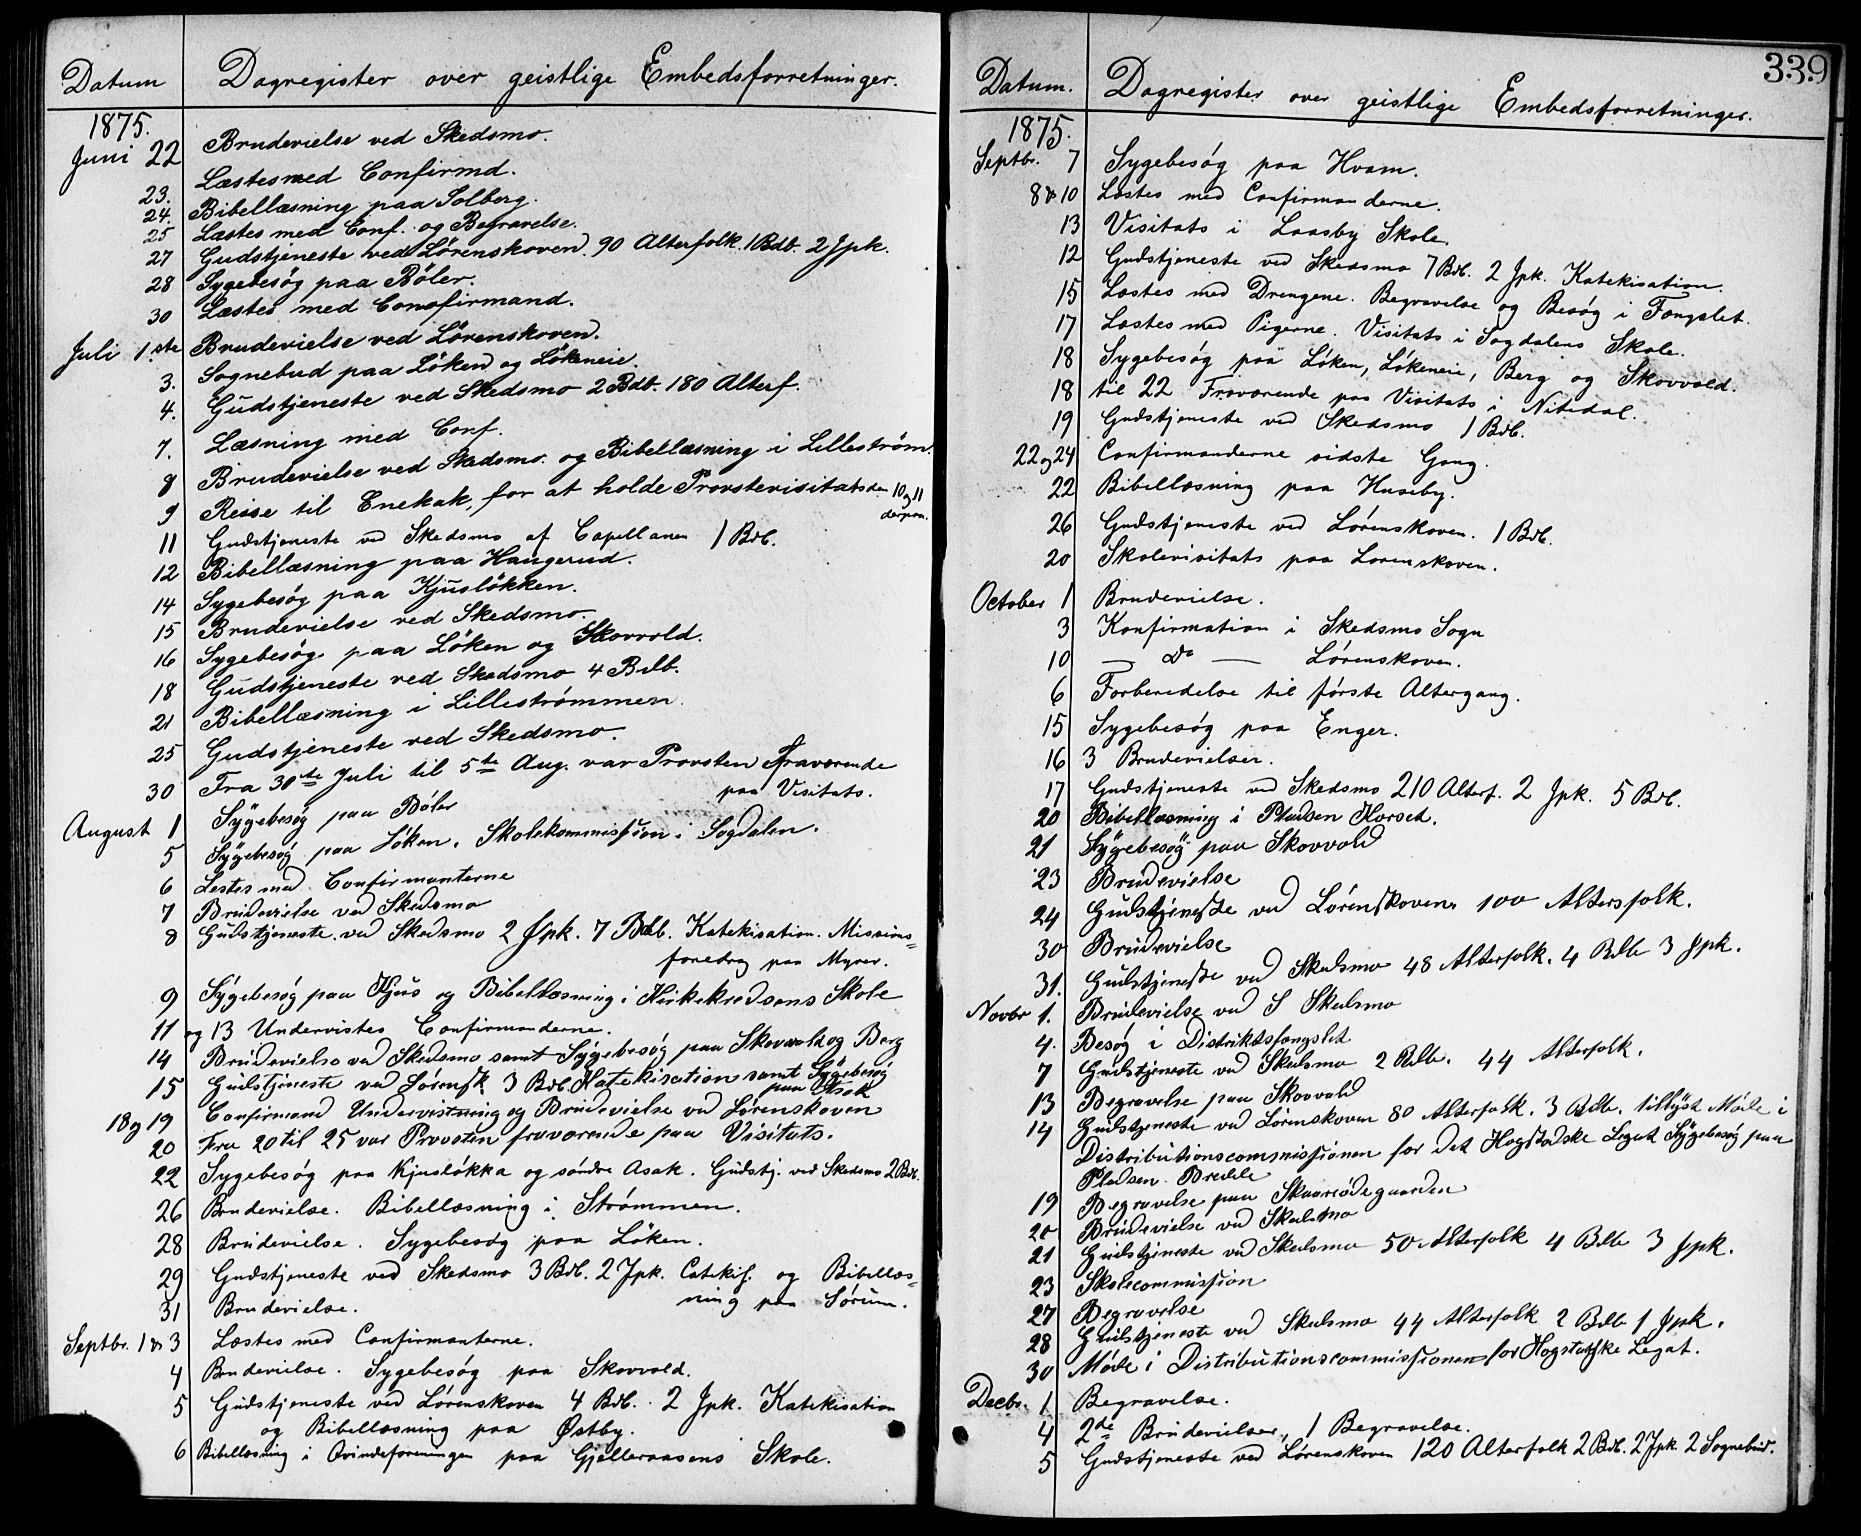 Datum
Dagregister over geistlige Embedsforretninger.
1875.
Juni 22 Brudevielse ved Skedsmo.
23. Læstes med Confirmd.
24. Bibellæsning paa Solberg.
25 Læstes med Conf. og Begravelse.
27 Gudstjeneste ved Lørenskoven. 90 Alterfolk. 1 Bdb. 2 Jpk.
28 Sygebesög paa Böler.
30 Læstes med Conofirmand.
Juli 1ste Brudevielse ved Lörenskoven.
3. Sognebud paa Löken og Lökeneie.
4. Gudstjeneste ved Skedsmo 2 Bdb. 180 Alterf.
7. Læsning med Conf.
8 Brudevielse ved Skedsmo. og Bibellæsning i Lilleström.
9 Reise til Enekak, for at holde Provstevisitats den 10 og 11
derpaa.
11 Gudstjeneste ved Skedsmo af Capellanen 1 Bdb.
12 Bibellæsning paa Haugerud.
14 Sygebesög paa Kjuslökken.
15 Brudevielse ved Skedsmo.
16 Sygebesög paa Löken og Skovvold.
18 Gudstjeneste ved Skedsmo 4 Bdb.
21 Bibellæsning i Lilleströmmen.
25 Gudstjeneste ved Skedsmo.
30 Fra 30te Juli til 5te Aug. var Provsten Fraværende
paa Visitats.
August 1 Sygebesög paa Böler
5 Sygebesög paa Löken. Skolekommission i Sogdalen.
6 Lestes med Confirmanterne
7 Brudevielse ved Skedsmo
8 Gudstjeneste ved Skedsmo 2 Jpk. 7 Bdb. Katekisation. Missions-
foredrag paa Myrer.
9 Sygebesög paa Kjus og Bibellæsning i Kirkekredsens Skole
11 og 13 Undervistes Confirmanderne.
14 Brudevielse ved Skedsmo samt Sygebesög paa Skovvold og Berg
15 Gudstjeneste ved Lörensk. 3 Bdb. Katekisation samt Sygebesög
paa Asak
18 og 19 Confirmand Undervistning og Brudevielse ved Lörenskoven
20 Fra 20 til 25 var Provsten fraværende paa Visitats.
22 Sygebesög paa Kjuslökka og söndre Asak. Gudstj. ved Skedsmo 2 Bdb.
26 Brudevielse. Bibellæsning i Strömmen.
28 Brudevielse. Sygebesög paa Löken.
29 Gudstjeneste ved Skedsmo 3 Bdb. 2 Jpk. Catekis. og Bibellæs-
ning paa Sörum.
31 Brudevielse.
Septbr. 1 & 3 Læstes med Confirmanterne.
4 Brudevielse. Sygebesög paa Skovvold.
5 Gudstjeneste ved Lörenskoven 4 Bdb. 2 Jpk. Katekisation
og Bibellæsning paa Østby.
6 Bibellæsning i Qvindeforeningen paa Gjelleraasens Skole.
339
Datum.
Dagregister over geistlige Embedsforretninger.
1875.
Septbr. 7 Sygebesög paa Hvam.
8 & 10 Læstes med Confirmanderne.
13 Visitats i Laasby Skole.
12 Gudstjeneste ved Skedsmo 7 Bdb. 2 Jpk. Katekisation.
15 Læstes med Drengene. Begravelse og Besög i Fængslet.
17 Læstes med Pigerne. Visitats i Sogdalens Skole.
18 Sygebesög paa Löken, Lökeneie, Berg og Skovvold.
18 til 22 Fraværende paa Visitats i Nitedal.
19 Gudstjeneste ved Skedsmo 1 Bdb.
22 og 24 Confirmanderne sidste Gang.
22 Bibellæsning paa Huseby.
26 Gudstjeneste ved Lörenskoven. 1 Bdb.
20 Skolevisitats paa Lorenskoven.
October 1 Brudevielse.
3 Konfirmation i Skedsmo Sogn
10 — do — Lörenskoven.
6 Forberedelse til förste Altergang.
15 Sygebesög paa Enger.
16 3 Brudevielser.
17 Gudstjeneste ved Skedsmo 210 Alterf. 2 Jpk. 5 Bdb.
20 Bibellæsning i Pladsen Korsed.
21 Sygebesög paa Skovvold
23 Brudevielse
24 Gudstjeneste ved Lörenskoven 100 Altersfolk.
30 Brudevielse
31. Gudstjeneste ved Skedsmo 48 Alterfolk. 4 Bdb 3 Jpk.
Novbr 1. Brudevielse ved S Skedsmo
4. Besög i Distriktsfængslet
7 Gudstjeneste ved Skedsmo 2 Bdb. 44 Alterfolk.
13 Begravelse paa Skovvold
14 Gudstjeneste ved Lörenskoven 80 Alterfolk. 3 Bdb. tillyst Möde i
Distributionscommissionen for det Hogstadske Legat Sygebesög paa
Pladsen
19 Begravelse paa Skaarerödegaarden
20 Brudevielse ved Skedsmo
21 Gudstjeneste ved Skedsmo 50 Alterfolk 4 Bdb 3 Jpk.
23 Skolecommission
27 Begravelse
28 Gudstjeneste ved Skedsmo 44 Alterfolk 2 Bdb 1 Jpk.
30 Möde i Distributionscommissionen for Hogstadske Legat.
Decbr. 1 Begravelse.
4 2de Brudevielser, 1 Begravelse.
5 Gudstjeneste ved Lörenskoven 120 Alterfolk 2 Bdb. 2 Jpk. 2 Sognebud.